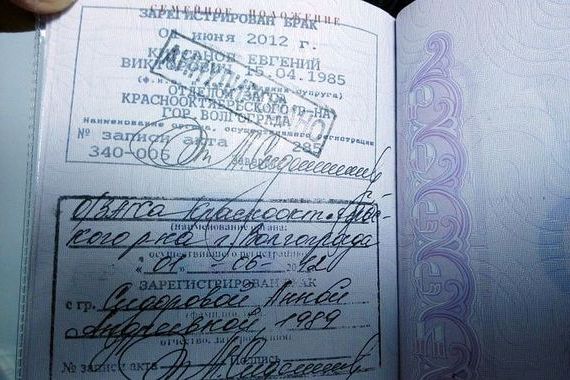 СЕМЕЙНОЕ ПОЛОЖЕНИЕ
ЗАРЕГИСТРИРОВАН БРАК
июня 2012 г.
ЕВГЕНИЙ
ВИКТОРОВИЧ 15.04.1985
супруга)
ОТДЕЛОМ
КРАСНООКТЯБРЬСКОГО Р-НА
ГОР. ВОЛГОГРАДА
Наименование органа, осуществившего регистрацию
№ записи акта 285
340-006
О/ЗАГСа Красноокт.
кого р-на г. Волгограда
(наименование органа,
осуществившего регистрацию)
"01" - 06 -
ЗАРЕГИСТРИРОВАН БРАК
с гр. Сидоровой Анной
Андреевной, 1989
отчество, дата рождения)
№ записи акта Подпись